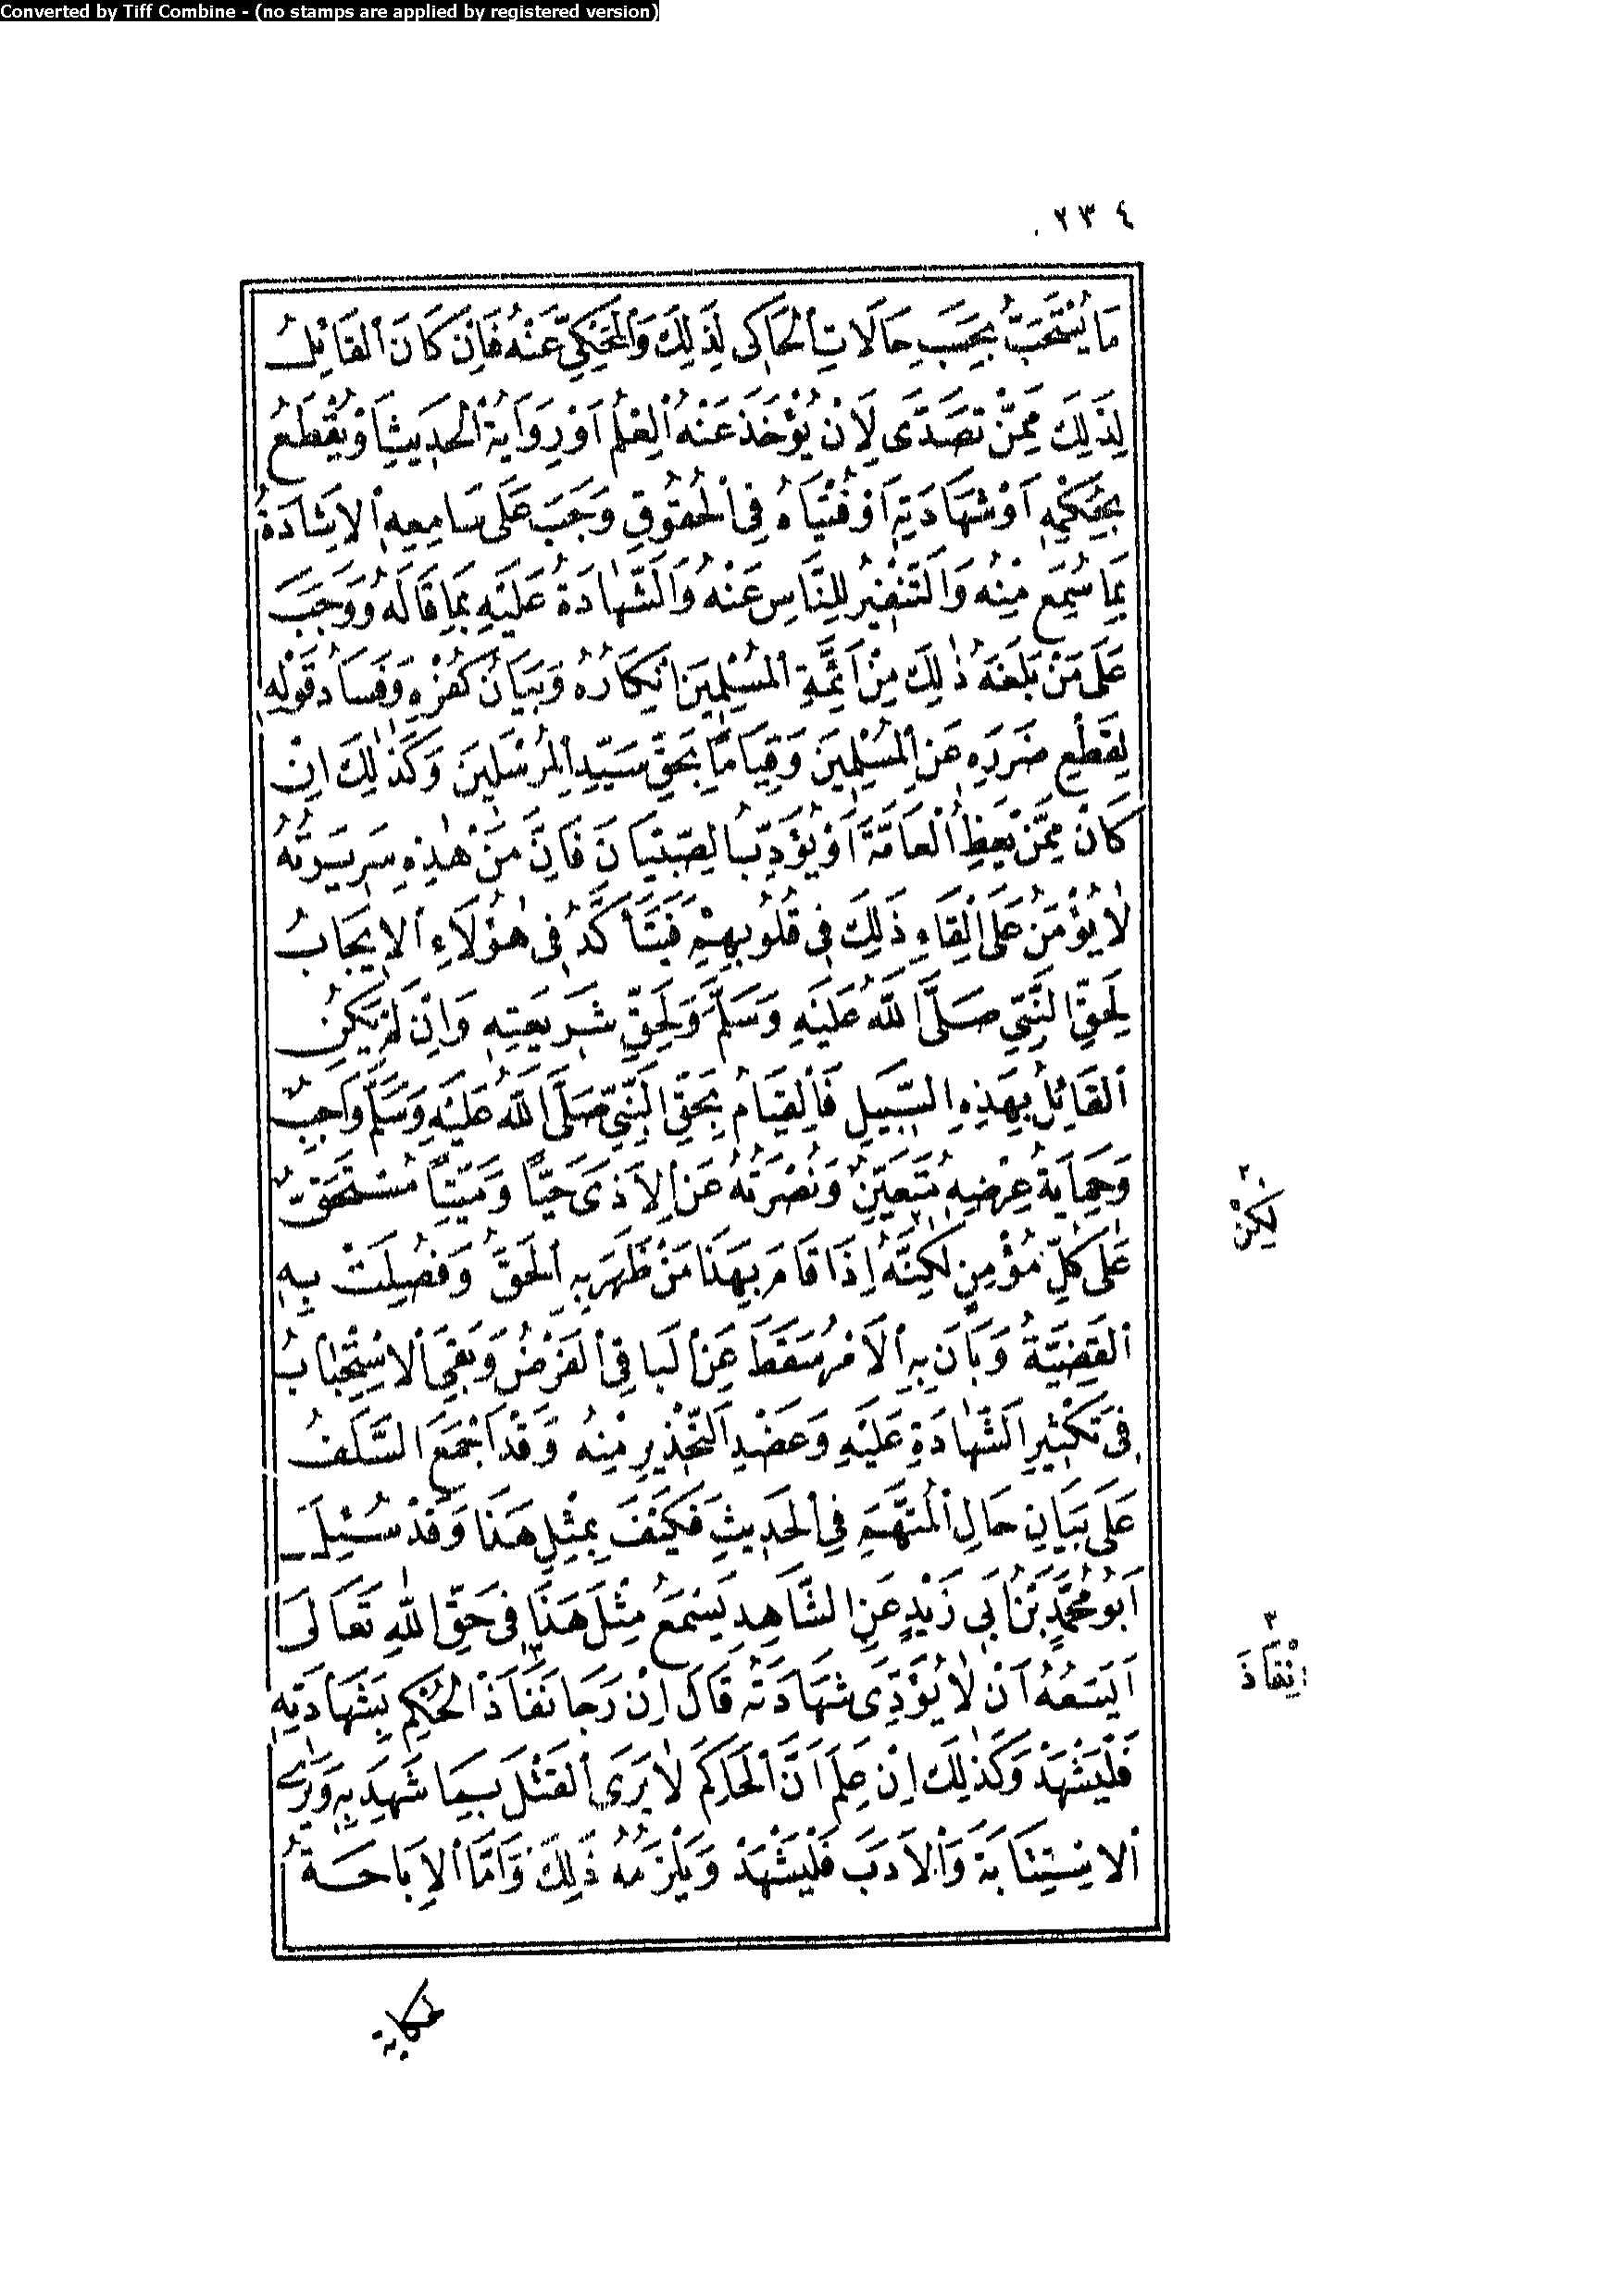 Converted by Tiff Combine - (no stamps are applied by registered version)
٢٣٤
مَا يُسْتَحَبُّ بِحَسَبِ حَالَاتِ الْحَاكِى لِذَلِكَ وَالْمَحْكِيِّ عَنْهُ فَاِنْ كَانَ الْقَائِلُ
لِذَلِكَ مِمَّنْ تَصَدَّى لِاَنْ يُؤْخَذَ عَنْهُ الْعِلْمُ اَوْ رِوَايَةُ الْحَدِيثِ اَوْ يُقْطَعُ
بِحُكْمِهِ اَوْ شَهَادَتِهِ اَوْ فُتْيَاهُ فِى الْحُقُوقِ وَجَبَ عَلَى سَامِعِهِ الْاِشَادَةُ
بِمَا سُمِعَ مِنْهُ وَالتَّنْفِيرُ لِلنَّاسِ عَنْهُ وَالشَّهَادَةُ عَلَيْهِ بِمَا قَالَهُ وَوَجَبَ
عَلَى مَنْ بَلَغَهُ ذٰلِكَ مِنْ اَئِمَّةِ الْمُسْلِمِينَ اِنْكَارُهُ وَبَيَانُ كُفْرِهِ وَفَسَادُ قَوْلِهِ
لِقَطْعِ ضَرَرِهِ عَنِ الْمُسْلِمِينَ وَقِيَامًا بِحَقِّ سَيِّدِ الْمُرْسَلِينَ وَكَذٰلِكَ اِنْ
كَانَ مِمَّنْ يَعِظُ الْعَامَّةَ اَوْ يُؤَدِّبُ الصِّبْيَانَ فَاِنَّ مَنْ هٰذِهِ سَرِيرَتُهُ
لَا يُؤْمَنُ عَلَى اِلْقَاءِ ذَلِكَ فِى قُلُوبِهِمْ فَيَتَأَكَّدُ فِى هٰؤُلَاءِ الْاِيجَابُ
لِحَقِّ النَّبِيِّ صَلَّى اللّٰهُ عَلَيْهِ وَسَلَّمَ وَلِحَقِّ شَرِيعَتِهِ وَاِنْ لَمْ يَكُنِ
الْقَائِلُ بِهَذِهِ السَّبِيلِ فَالْقِيَامُ بِحَقِّ النَّبِيِّ صَلَّى اللّٰهُ عَلَيْهِ وَسَلَّمَ وَاجِبٌ
وَحِمَايَةُ عِرْضِهِ مُتَعَيِّنٌ وَنُصْرَتُهُ عَنِ الْاَذَى حَيًّا وَمَيِّتًا مُسْتَحَقٌّ
عَلَى كُلِّ مُؤْمِنٍ لَكِنَّهُ اِذَا قَامَ بِهَذَا مَنْ ظَهَرَ بِهِ الْحَقُّ وَفُصِلَتْ بِهِ
الْقَضِيَّةُ وَبَانَ بِهِ الْاَمْرُ سَقَطَ عَنِ الْبَاقِى الْفَرْضُ وَبَقِىَ الْاِسْتِحْبَابُ
فِى تَكْثِيرِ الشَّهَادَةِ عَلَيْهِ وَعَضْدِ التَّحْذِيرِ مِنْهُ وَقَدْ اَجْمَعَ السَّلَفُ
عَلَى بَيَانِ حَالِ الْمُتَّهَمِ فِى الْحَدِيثِ فَكَيْفَ بِمِثْلِ هَذَا وَقَدْ سُئِلَ
اَبُو مُحَمَّدِ بْنُ اَبِى زَيْدٍ عَنِ الشَّاهِدِ يَسْمَعُ مِثْلَ هَذَا فِى حَقِّ اللّٰهِ تَعَالَى
اَيَسَعُهُ اَنْ لَا يُؤَدِّىَ شَهَادَتَهُ قَالَ اِنْ رَجَا نَفَاذَ الْحُكْمِ بِشَهَادَتِهِ
فَلْيَشْهَدْ وَكَذٰلِكَ اِنْ عَلِمَ اَنَّ الْحَاكِمَ لَا يَرَى الْقَتْلَ بِمَا شَهِدَ بِهِ وَيَرَى
الْاِسْتِتَابَةَ وَالْاَدَبَ فَلْيَشْهَدْ وَيَلْزَمُهُ ذَلِكَ وَاَمَّا الْاِبَاحَةُ
٢
لَكِنْ
٣
اِنْفَاذَ
لحكاية